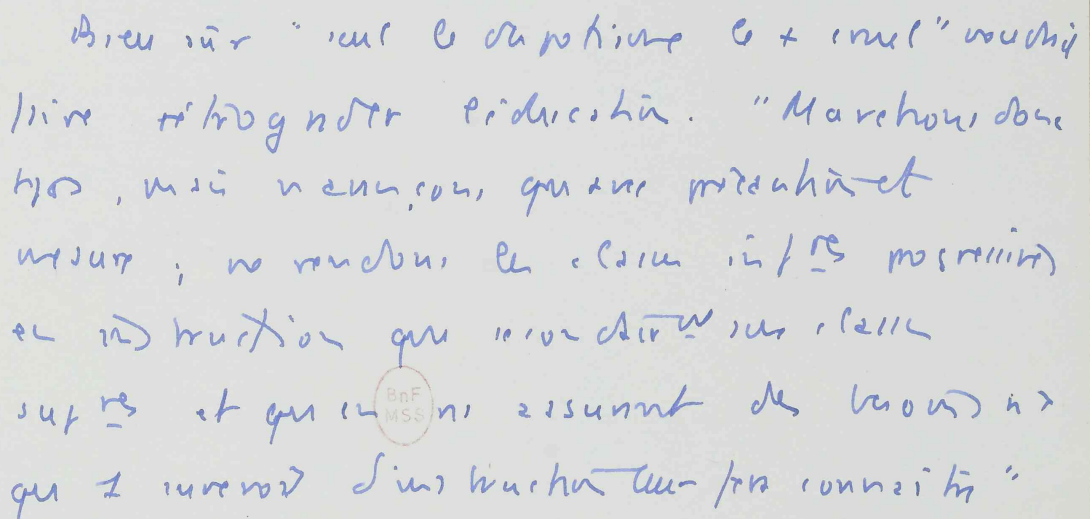 Bien sûr "seul le despotisme le + cruel" voudrait
faire rétrograder l'éducation. "Marchons donc
tjrs, mais n'avançons qu'avec précaution et
mesure ; ne rendons les classes inf res progressives
en instruction que secondairt aux classes
sup res et qu'en ns assurant des besoins
qu'1 d'instruction leur fera connaître"
BnF
MSS